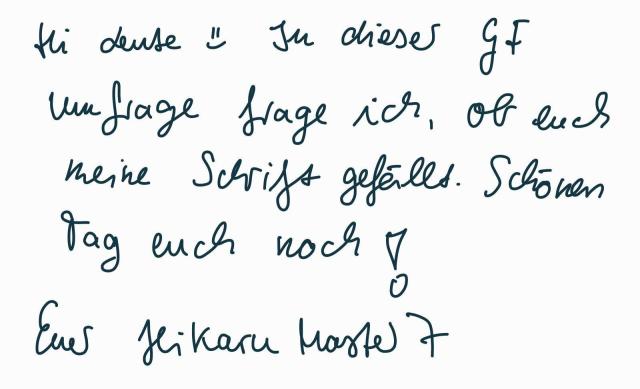 Hi Leute ü In dieser GF
Umfrage frage ich, ob euch
meine Schrift gefällt. Schönen
Tag euch noch!
Euer HikaruMaster7